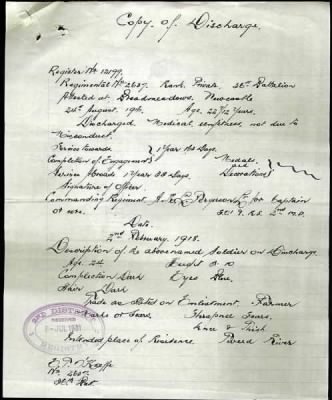 Copy of Discharge.
Register No 12199.
Regimental No 2687. Rank. Private. 36th Battalion
Attested at Broadmeadows, Newcastle
24th August 1916. Age. 22 7/12 Years.
Discharged. Medical, unfitness, not due to
Misconduct.
Service towards 1 Year 163 Days.
Completion of Engagement Medals.
and
Service Abroad 1 Year 38 Days Decorations
Signature of Officer
Commanding Regiment Ferguson for Captain
2nd M.D.
Date.
2nd February. 1918.
Description of the above named Soldier on Discharge
Age. 24 Height 5. 10
Complection Dark Eyes Blue.
Hair Dark
Trade as Stated on Enlistment. Farmer
Marks or Scars. Shrapnel Scars.
Knee & Thigh
Intended place of Residence. River
2ND DISTRICT
RECEIVED
8 - JUL 1931
E. P. O'Keeffe
No. 2687.
36th Bat